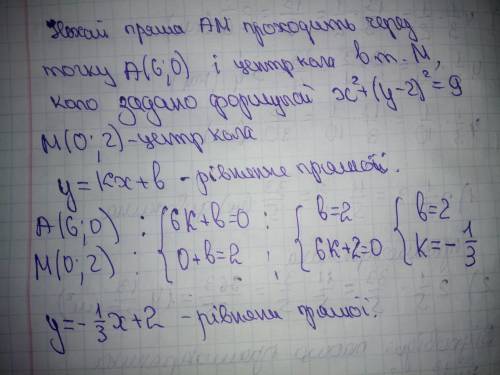 Нехай пряма AM проходить через
точку A(6;0) і центр кола в т. M,
коло задано формулой x²+(y-2)²=9
M(0;2)-центр кола
y=kx+b - рівнення прямої.
A(6;0) : { 6k+b=0 ; { b=2 { b=2
M(0;2) : { 0+b=2 ; { 6k+2=0 { k=-1/3
y=-1/3x+2 - рівнени прямої.